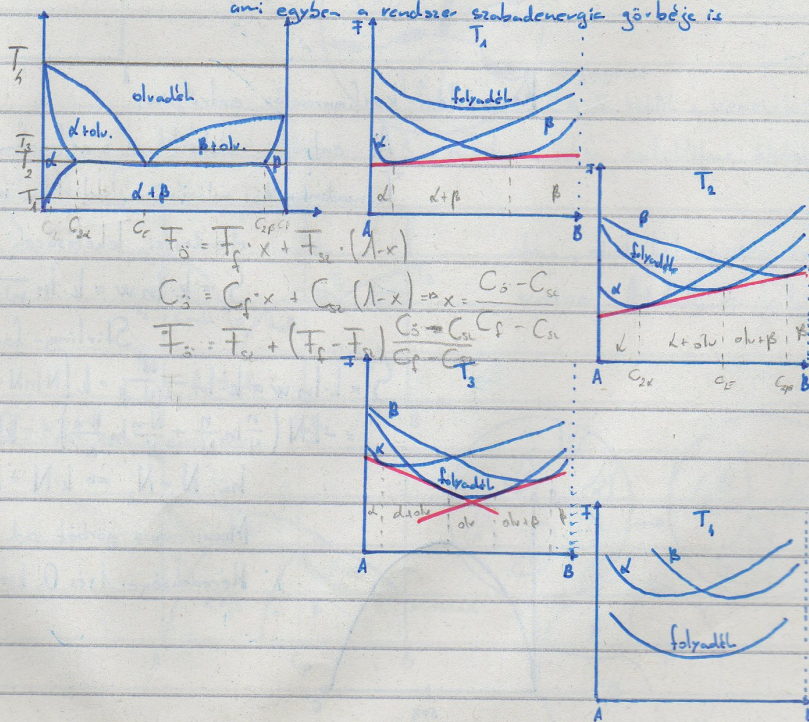 ami egyben a rendszer szabadenergia görbéje is
T₄
olvadék
α+olv.
β+olv.
T₃
T₂
α
β
T₁
α+β
C₂α
C_E
C₂β
F
T₁
folyadék
α
β
α
α+β
β
A
B
F_ö = F_f · x + F_sz · (1-x)
C_ö = C_f · x + C_sz (1-x) ⇒ x = (C_ö - C_sz)/(C_f - C_sz)
F_ö = F_sz + (F_f - F_sz) (C_ö - C_sz)/(C_f - C_sz)
F
T₂
β
folyadék
α
α
α+olv
olv+β
β
A
C₂α
C_E
C₂β
B
F
T₃
β
α
folyadék
α
α+olv
olv
olv+β
β
A
B
F
T₄
α
β
folyadék
A